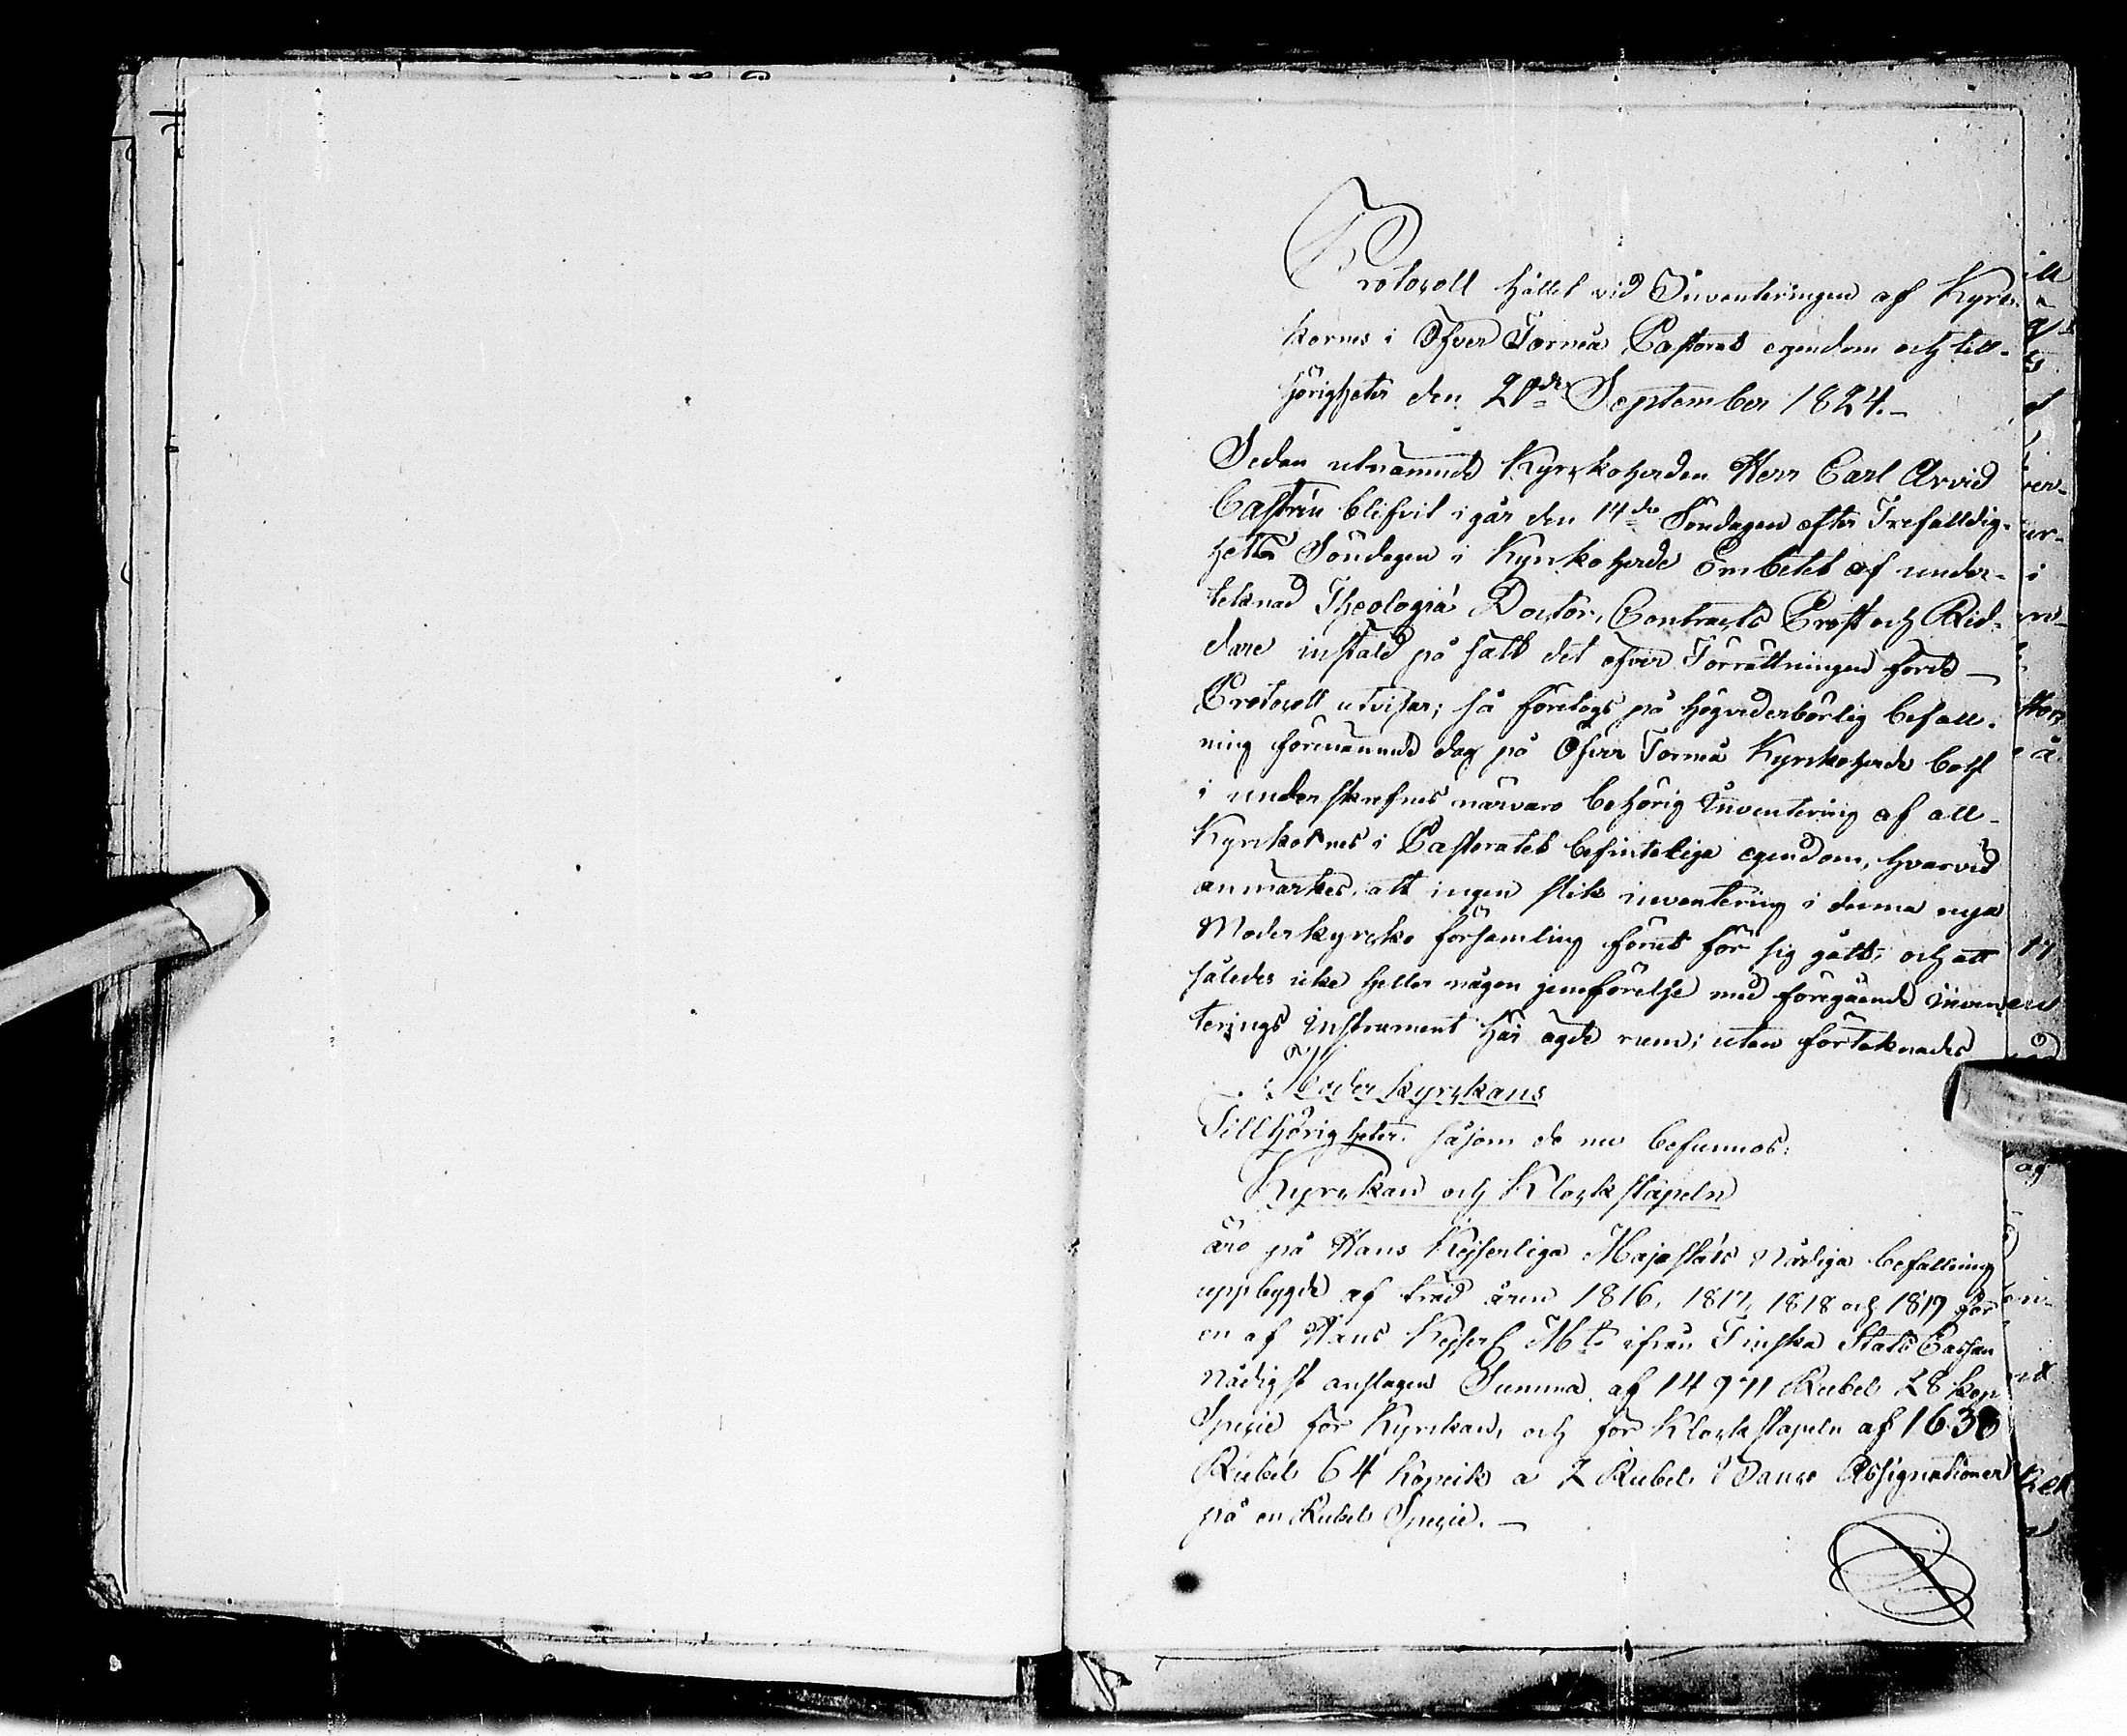 Protocoll hållet vid Inventeringen af Kyrc-
kornes i Öfver Torneå Pastorat egendom och till-
hörigheter den 20de September 1824.-
Sedan utnämnde Kyrckoherden Herr Carl Arvid
Castrén blifvit i går den 14de Söndagen efter Trefalldig-
hets Söndagen i Kyrkoherde Embetet af under-
teknad Theologiæ Doctor, Contracts Prost och Rid-
dare installd på sätt det öfver Förrättningen förde
Protocoll utvisar; så företogs på högvederbörlig befall-
ning förenämnde dag på Öfver Torneå Kyrckoherde boll
i underskrefnes närvaro behörig Inventering af all
Kyrckornes i Pastoratet befinteliga egendom, hvarvid
anmärkes, att ingen slik inventering i denna nya
Moderkyrcko församling förut för sig gått, och att
således icke heller någon jemförelse med föregående inven-
terings instrument här ägde rum; utan förteknades
Moderkyrckans
Tillhörigheter, såsom de nu befunnos:
Kyrckan och Klockstapeln
äro på Hans Kejserliga Majestäts Nådiga befallning
uppbygde af träd åren 1816, 1817, 1818 och 1819 för
en af Hans Kejserl Mts ifrån Finska Stats Cassan
Nådigst anslagen Summa af 14971 Rubel 28 kop
Specie för Kyrckan, och för Klockstapeln af 1638
Rubel 64 Kopeik a 2 Rubel Banco Assignationer
på en Rubel Specie.-